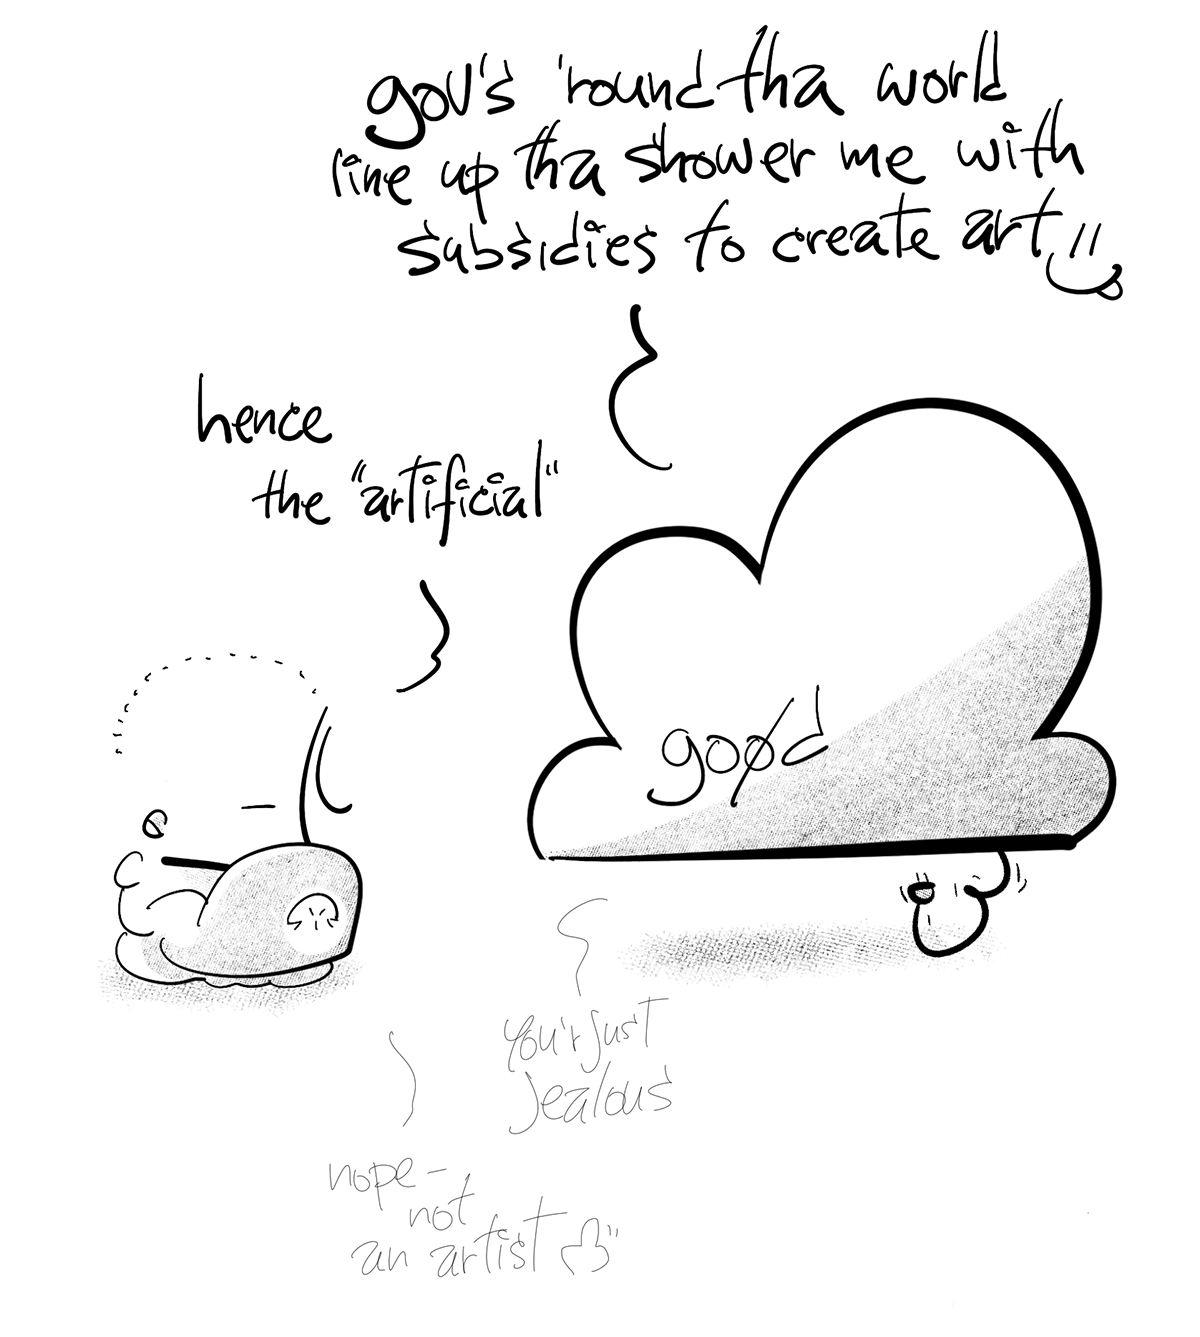 gov's 'round tha world
line up tha shower me with
subsidies to create art
hence
the "artificial"
good
you'r just
jealous
nope-
not
an artist